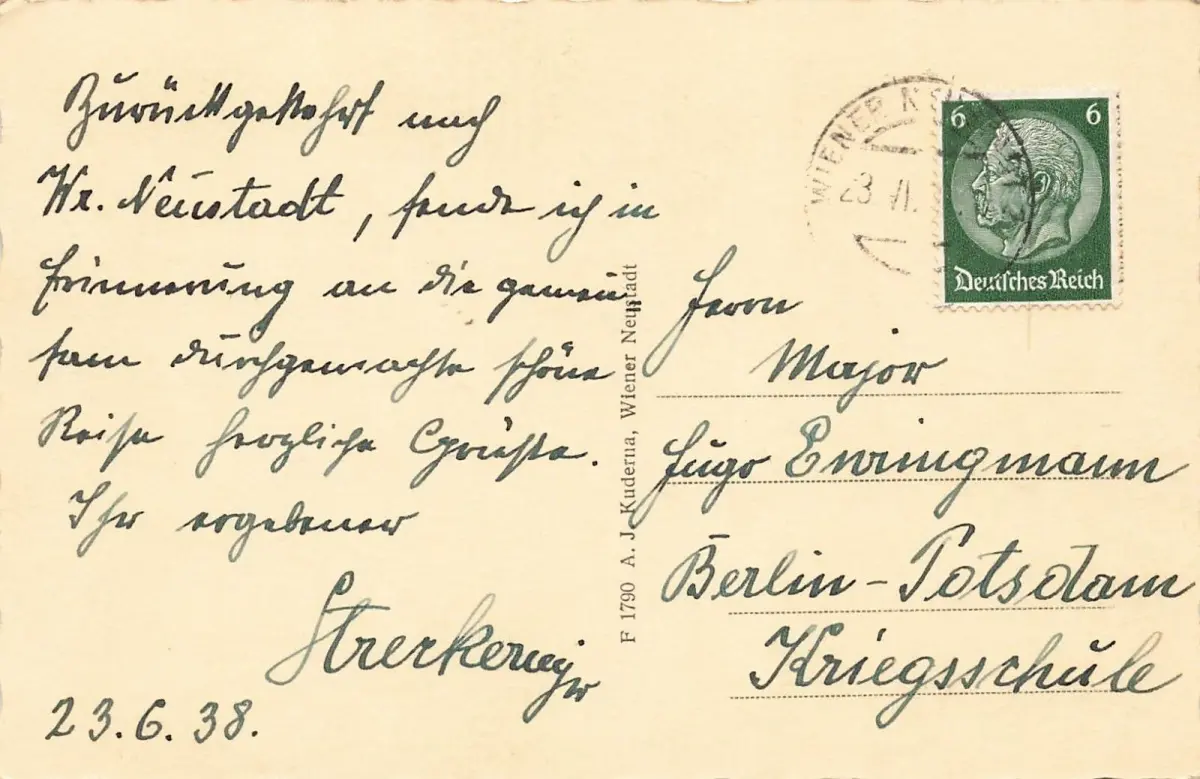 Zurückgekehrt nach
Wr. Neustadt, sende ich in
Erinnerung an die gemein
sam durchgemachte schöne
Reise herzliche Grüsse.
Ihr ergebener
23.6.38.
F 1790 A. J. Kuderna, Wiener Neustadt
WIENER NEUSTADT
23. VI.
6 6
Deutsches Reich
Herrn
Major
Hugo Ewringmann
Berlin-Potsdam
Kriegsschule